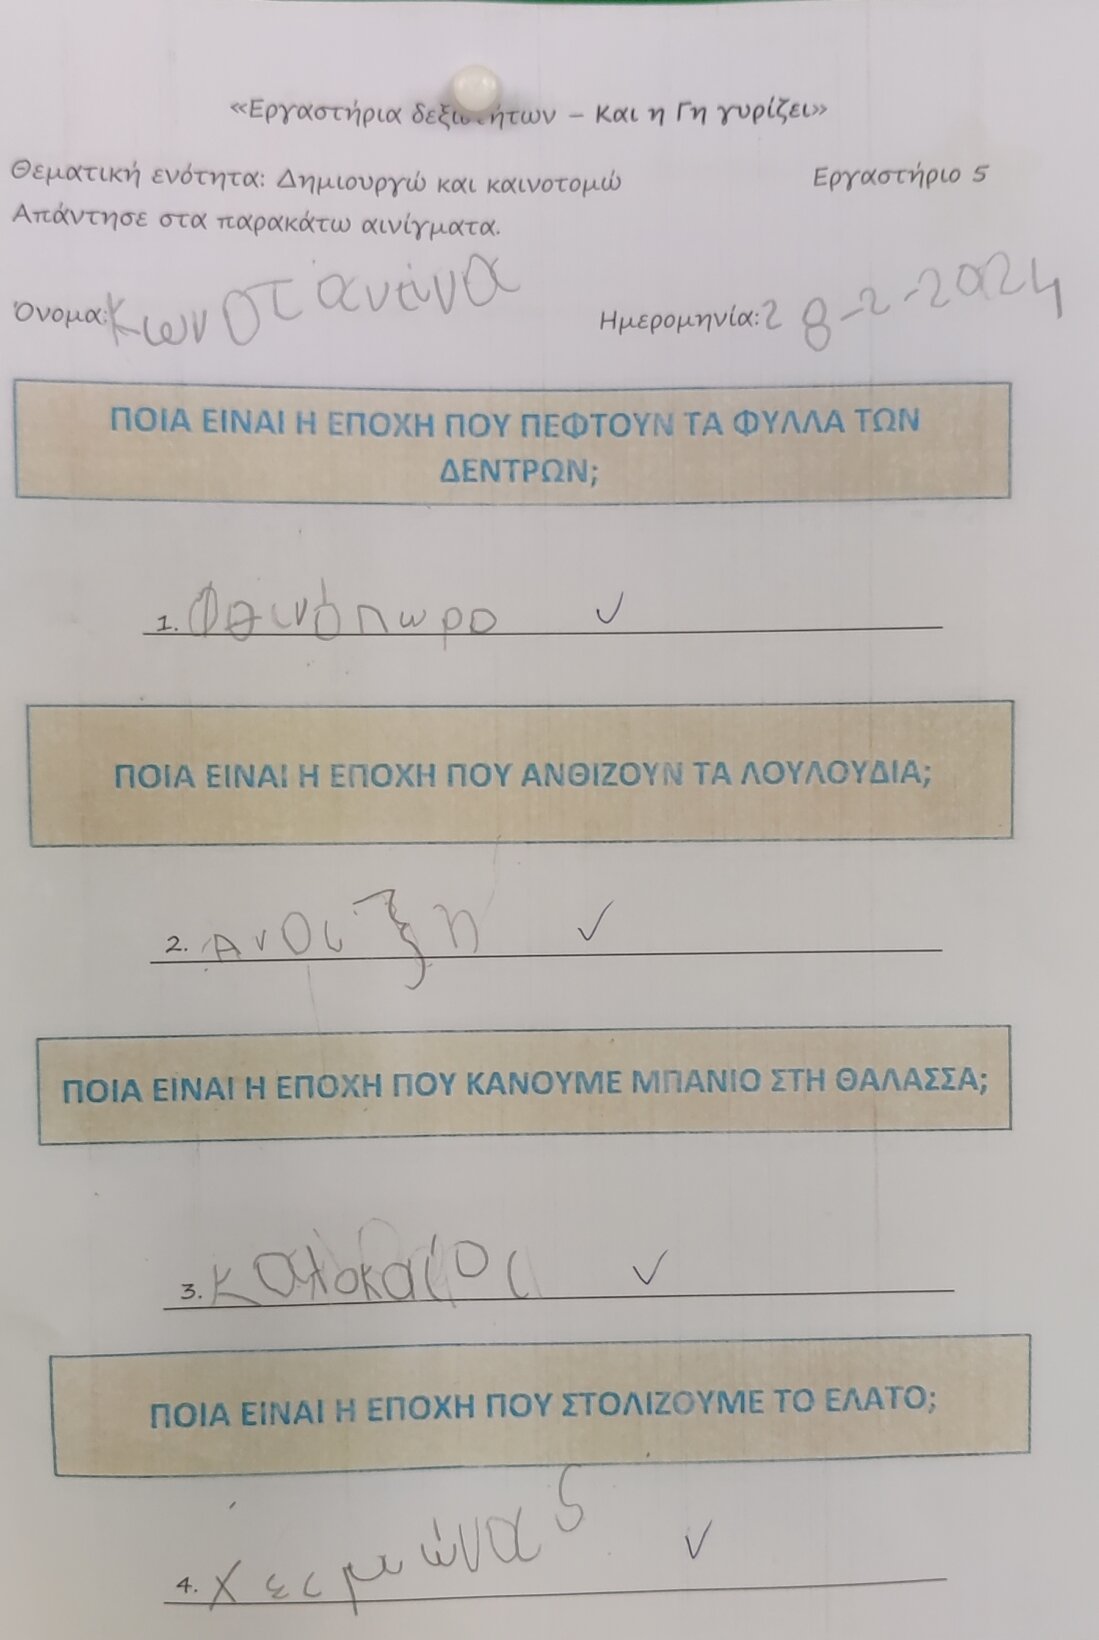 «Εργαστήρια δεξιοτήτων – Και η Γη γυρίζει»
Θεματική ενότητα: Δημιουργώ και καινοτομώ Εργαστήριο 5
Απάντησε στα παρακάτω αινίγματα.
Όνομα: Κωνσταντίνα Ημερομηνία: 28-2-2024
ΠΟΙΑ ΕΙΝΑΙ Η ΕΠΟΧΗ ΠΟΥ ΠΕΦΤΟΥΝ ΤΑ ΦΥΛΛΑ ΤΩΝ
ΔΕΝΤΡΩΝ;
1. Φθινόπωρο
ΠΟΙΑ ΕΙΝΑΙ Η ΕΠΟΧΗ ΠΟΥ ΑΝΘΙΖΟΥΝ ΤΑ ΛΟΥΛΟΥΔΙΑ;
2. Ανοιξη
ΠΟΙΑ ΕΙΝΑΙ Η ΕΠΟΧΗ ΠΟΥ ΚΑΝΟΥΜΕ ΜΠΑΝΙΟ ΣΤΗ ΘΑΛΑΣΣΑ;
3.
ΠΟΙΑ ΕΙΝΑΙ Η ΕΠΟΧΗ ΠΟΥ ΣΤΟΛΙΖΟΥΜΕ ΤΟ ΕΛΑΤΟ;
4. Χειμώνας